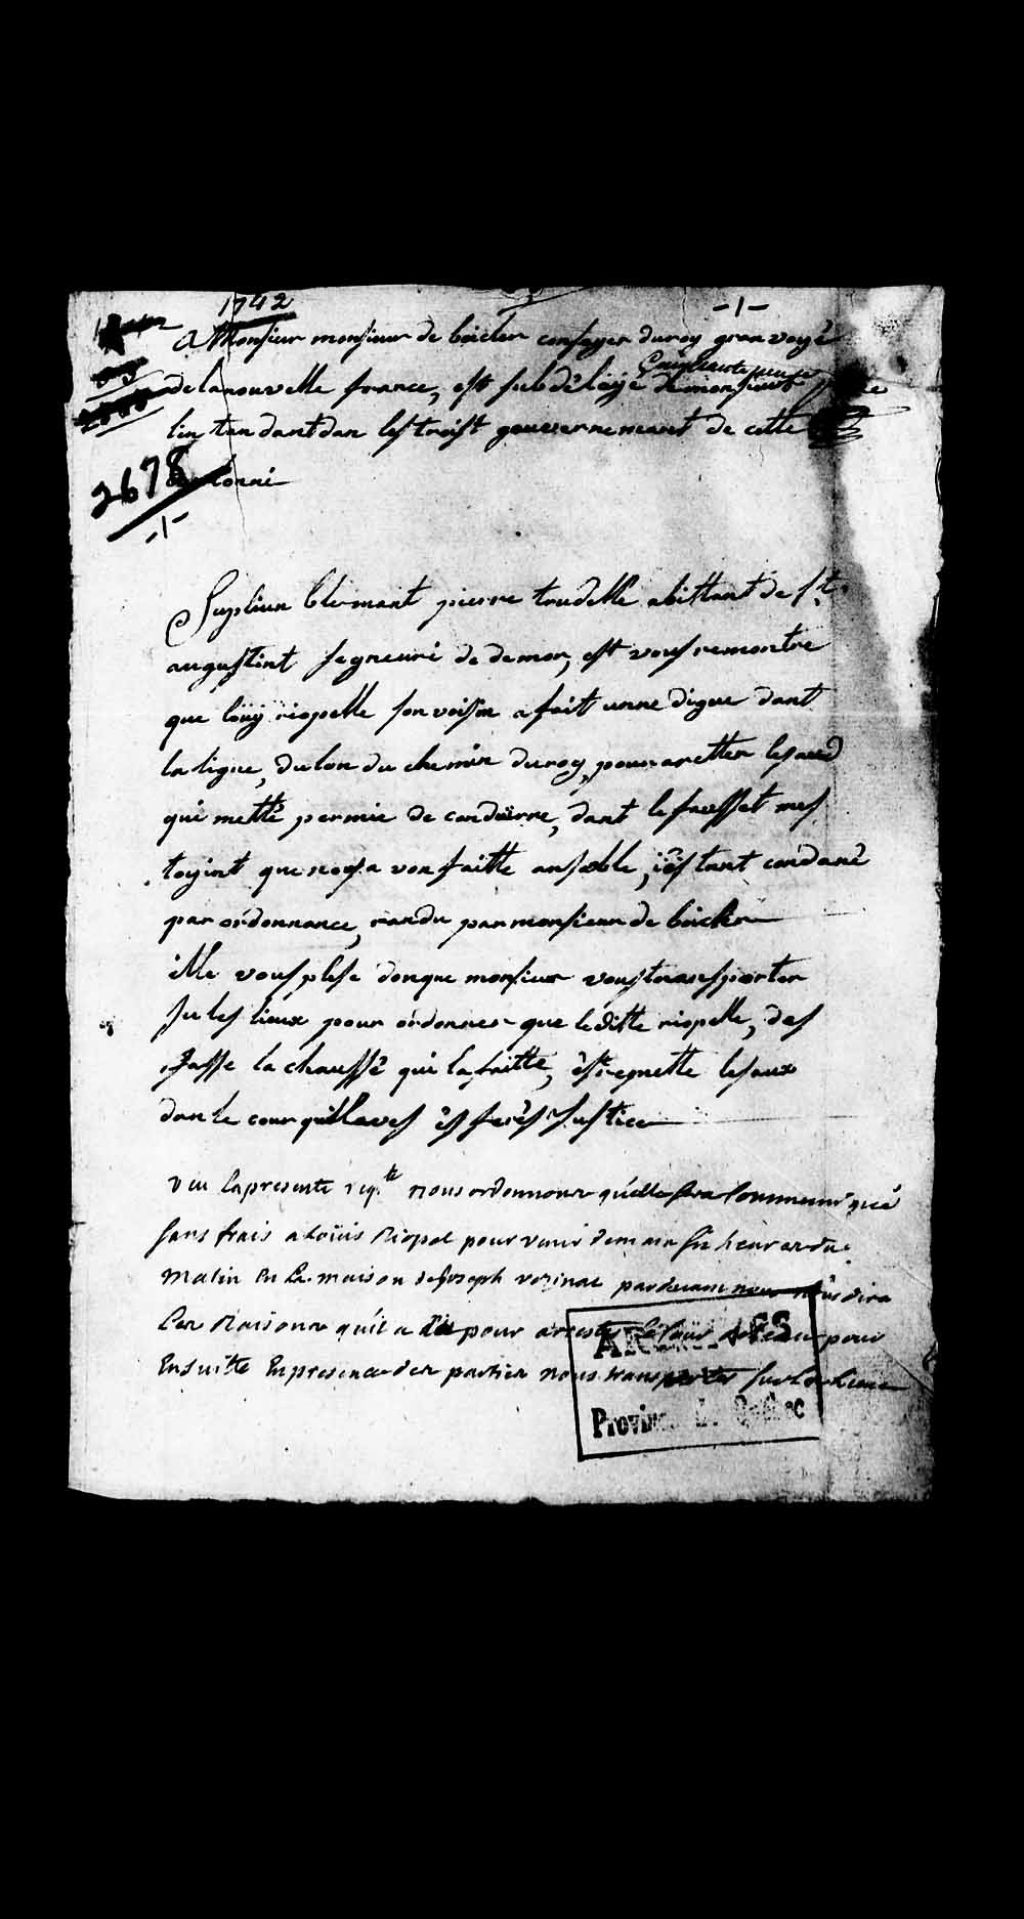 1742
-1-
A Monsieur monsieur de boicler conseyer du roy gran voyé
de la nouvelle france, est subdélaigé de monsieur
lin tan dant dan les troist gouvernemeant de cette
2678
conni
-1-
Supliun blemant pierre trudelle abittant de st.
augustint segneuri de demor, est vous remontre
que loüy riopelle son voisin a fait unne digue dant
la ligne, du lon du chemin du roy, pour aretter les aud
qui metté permie de conduirre, dant le fausset mes
toyint que nous a von faitte ansable, iéstant condané
par ordonnance, randu par monsieur de boicler
ille vous plese donque monsieur vous transporter
su les lieux pour ordonner que le ditte riopelle, des
fasse la chaussé qui la faitte, est regnette les aux
dan le cour quillaves és ferés Justice
Veu la presente reqte nous ordonnons quelle sera Communiqué
sans frais a Loüis Riopel pour venir demain six heures du
matin En la maison de Joseph vozinat pardevant nous nous dira
Les Raisons qu'il a Eü pour arester le cours de l'eau pour
Ensuitte En presence des parties nous transporter sur Les Lieux
ARCHIVES
Province de Québec